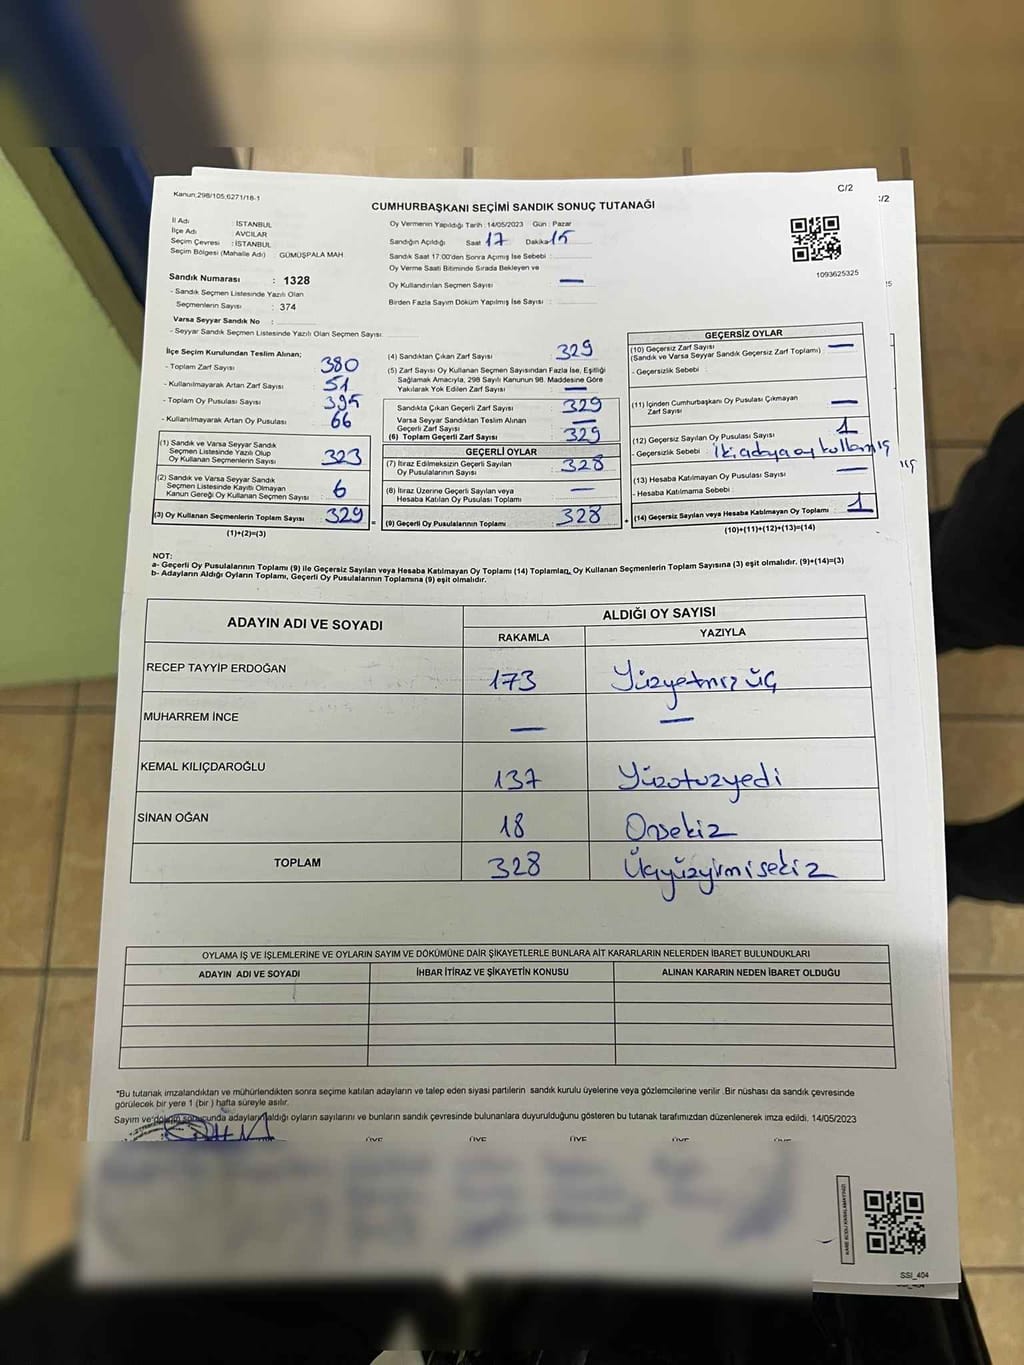 Kanun;298/105;6271/18-1
C/2
:/2
CUMHURBAŞKANI SEÇİMİ SANDIK SONUÇ TUTANAĞI
İl Adı : İSTANBUL
İlçe Adı : AVCILAR
Seçim Çevresi : İSTANBUL
Seçim Bölgesi (Mahalle Adı) : GÜMÜŞPALA MAH
Sandık Numarası : 1328
- Sandık Seçmen Listesinde Yazılı Olan
Seçmenlerin Sayısı : 374
Varsa Seyyar Sandık No :
- Seyyar Sandık Seçmen Listesinde Yazılı Olan Seçmen Sayısı:
Oy Vermenin Yapıldığı Tarih : 14/05/2023 Gün : Pazar
Sandığın Açıldığı Saat 17 Dakika 15
Sandık Saat 17:00'den Sonra Açımış İse Sebebi :
Oy Verme Saati Bitiminde Sırada Bekleyen ve
Oy Kullandırılan Seçmen Sayısı —
Birden Fazla Sayım Döküm Yapılmış İse Sayısı :
1093625325
İlçe Seçim Kurulundan Teslim Alınan;
- Toplam Zarf Sayısı 380
- Kullanılmayarak Artan Zarf Sayısı 51
- Toplam Oy Pusulası Sayısı 395
- Kullanılmayarak Artan Oy Pusulası 66
(1) Sandık ve Varsa Seyyar Sandık
Seçmen Listesinde Yazılı Olup
Oy Kullanan Seçmenlerin Sayısı 323
(2) Sandık ve Varsa Seyyar Sandık
Seçmen Listesinde Kayıtlı Olmayan
Kanun Gereği Oy Kullanan Seçmen Sayısı 6
(3) Oy Kullanan Seçmenlerin Toplam Sayısı 329 =
(1)+(2)=(3)
(4) Sandıktan Çıkan Zarf Sayısı 329
(5) Zarf Sayısı Oy Kullanan Seçmen Sayısından Fazla İse, Eşitliği
Sağlamak Amacıyla, 298 Sayılı Kanunun 98. Maddesine Göre
Yakılarak Yok Edilen Zarf Sayısı —
Sandıkta Çıkan Geçerli Zarf Sayısı 329
Varsa Seyyar Sandıktan Teslim Alınan
Geçerli Zarf Sayısı —
(6) Toplam Geçerli Zarf Sayısı 329
GEÇERLİ OYLAR
(7) İtiraz Edilmeksizin Geçerli Sayılan
Oy Pusulalarının Sayısı 328
(8) İtiraz Üzerine Geçerli Sayılan veya
Hesaba Katılan Oy Pusulası Toplamı —
(9) Geçerli Oy Pusulalarının Toplamı 328 +
GEÇERSİZ OYLAR
(10) Geçersiz Zarf Sayısı —
(Sandık ve Varsa Seyyar Sandık Geçersiz Zarf Toplamı)
- Geçersizlik Sebebi :
(11) İçinden Cumhurbaşkanı Oy Pusulası Çıkmayan
Zarf Sayısı —
(12) Geçersiz Sayılan Oy Pusulası Sayısı 1
- Geçersizlik Sebebi : İki adaya oy kullanmış
(13) Hesaba Katılmayan Oy Pusulası Sayısı —
- Hesaba Katılmama Sebebi :
(14) Geçersiz Sayılan veya Hesaba Katılmayan Oy Toplamı 1
(10)+(11)+(12)+(13)=(14)
NOT:
a- Geçerli Oy Pusulalarının Toplamı (9) ile Geçersiz Sayılan veya Hesaba Katılmayan Oy Toplamı (14) Toplamları, Oy Kullanan Seçmenlerin Toplam Sayısına (3) eşit olmalıdır. (9)+(14)=(3)
b- Adayların Aldığı Oyların Toplamı, Geçerli Oy Pusulalarının Toplamına (9) eşit olmalıdır.
ADAYIN ADI VE SOYADI
ALDIĞI OY SAYISI
RAKAMLA YAZIYLA
RECEP TAYYİP ERDOĞAN 173 Yüzyetmiş üç
MUHARREM İNCE — —
KEMAL KILIÇDAROĞLU 137 Yüzotuzyedi
SİNAN OĞAN 18 Onsekiz
TOPLAM 328 Üçyüzyirmisekiz
OYLAMA İŞ VE İŞLEMLERİNE VE OYLARIN SAYIM VE DÖKÜMÜNE DAİR ŞİKAYETLERLE BUNLARA AİT KARARLARIN NELERDEN İBARET BULUNDUKLARI
ADAYIN ADI VE SOYADI İHBAR İTİRAZ VE ŞİKAYETİN KONUSU ALINAN KARARIN NEDEN İBARET OLDUĞU
*Bu tutanak imzalandıktan ve mühürlendikten sonra seçime katılan adayların ve talep eden siyasi partilerin sandık kurulu üyelerine veya gözlemcilerine verilir. Bir nüshası da sandık çevresinde
görülecek bir yere 1 (bir) hafta süreyle asılır.
Sayım ve döküm sonucunda adayların aldığı oyların sayılarını ve bunların sandık çevresinde bulunanlara duyurulduğunu gösteren bu tutanak tarafımızdan düzenlenerek imza edildi. 14/05/2023
ÜYE ÜYE ÜYE ÜYE ÜYE
KARE KODU KARALAMAYINIZ!
SSI_404